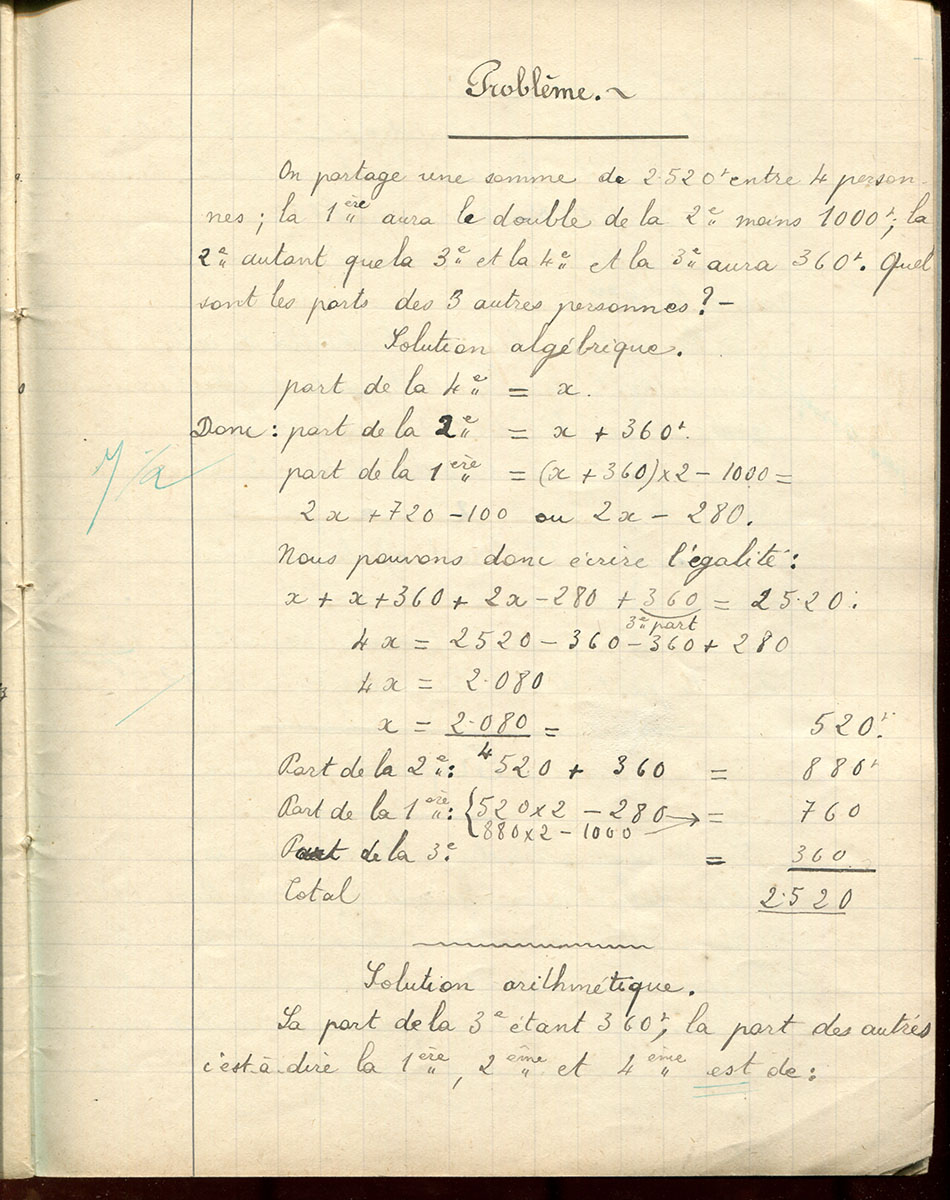 Problème.~
On partage une somme de 2.520ᶠ entre 4 person-
nes ; la 1ère aura le double de la 2e moins 1000ᶠ; la
2e autant que la 3e et la 4e et la 3e aura 360ᶠ. Quel
sont les parts des 3 autres personnes ? –
Solution algébrique.
part de la 4e = x.
Donc : part de la 2e = x + 360ᶠ.
part de la 1ère = (x + 360) x 2 – 1000 =
2x + 720 – 100 ou 2x – 280.
Nous pouvons donc écrire l'égalité :
x + x + 360 + 2x – 280 + 360 = 2520.
3e part
4x = 2520 – 360 – 360 + 280
4x = 2.080
x = 2.080 = 520ᶠ.
4
Part de la 2e : 520 + 360 = 880ᶠ
Part de la 1ère : { 520 x 2 – 280 → = 760
880 x 2 – 1000
Part de la 3e. = 360
Total 2.520
Solution arithmétique.
La part de la 3e étant 360ᶠ, la part des autres
c'est à dire la 1ère, 2ème et 4ème est de :